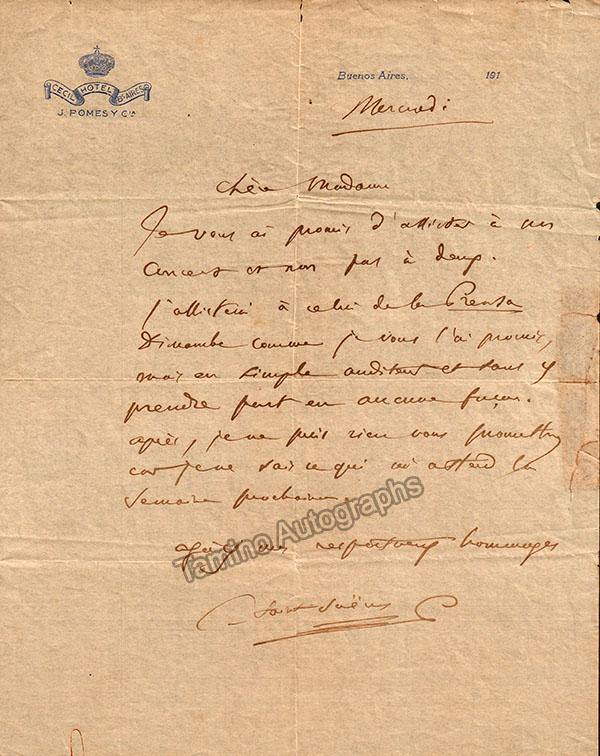 CECIL HOTEL Bs AIRES
J. POMES Y Cia
Buenos Aires, 191
Mercredi
Chère Madame
Je vous ai promis d'assister à un
concert et non pas à deux.
J'assisterai à celui de la Prensa
Dimanche comme je vous l'ai promis,
mais en simple auditeur et sans y
prendre part en aucune façon.
après, je ne puis rien vous promettre
car je ne sais ce qui m'attend la
semaine prochaine.
agréez mes respectueux hommages
C. Saint-Saëns
Tamino Autographs